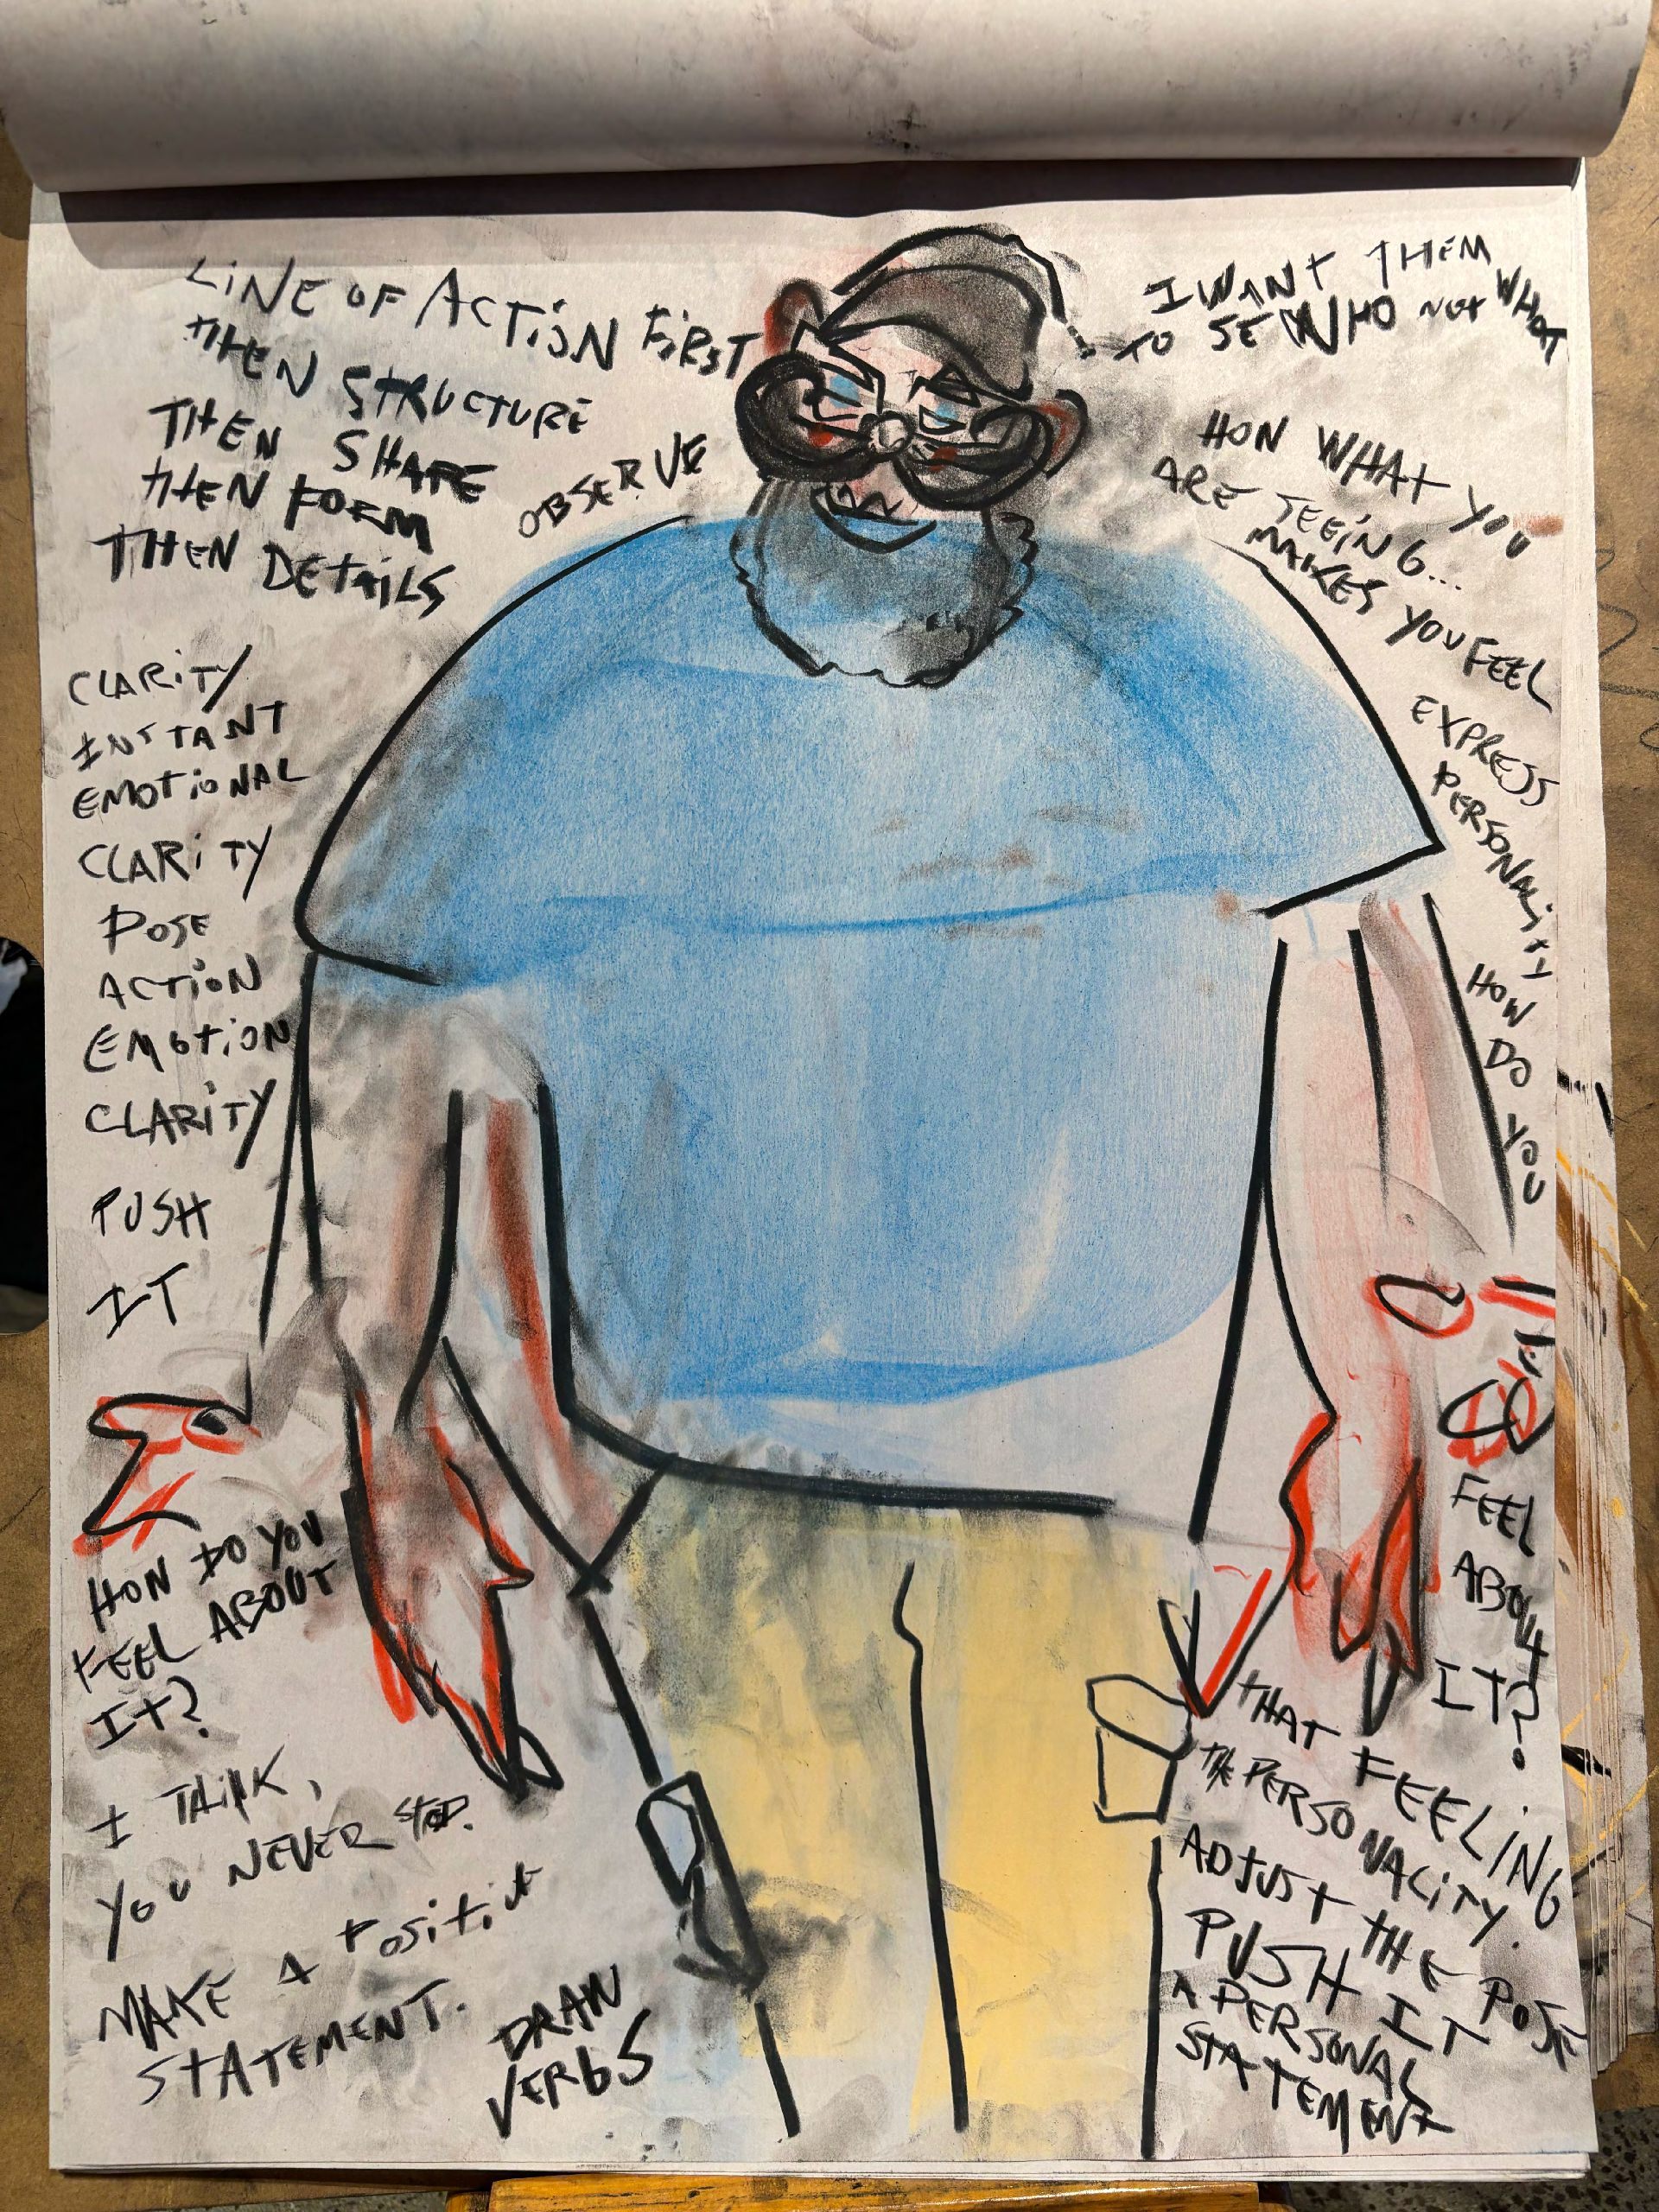 LINE OF ACTION FIRST
THEN STRUCTURE
THEN SHAPE
THEN FORM
THEN DETAILS
OBSERVE
CLARITY
INSTANT
EMOTIONAL
CLARITY
POSE
ACTION
EMOTION
CLARITY
PUSH
IT
HOW DO YOU
FEEL ABOUT
IT?
I THINK,
YOU NEVER STOP.
MAKE A POSITIVE
STATEMENT.
DRAW
VERBS
I WANT THEM
TO SE WHO NOT WHAT
HOW WHAT YOU
ARE SEEING...
MAKES YOU FEEL
EXPRESS
PERSONALITY
HOW
DO
YOU
FEEL
ABOUT
IT?
THAT FEELING
THE PERSONALITY.
ADJUST THE POSE
PUSH IT
A PERSONAL
STATEMENT